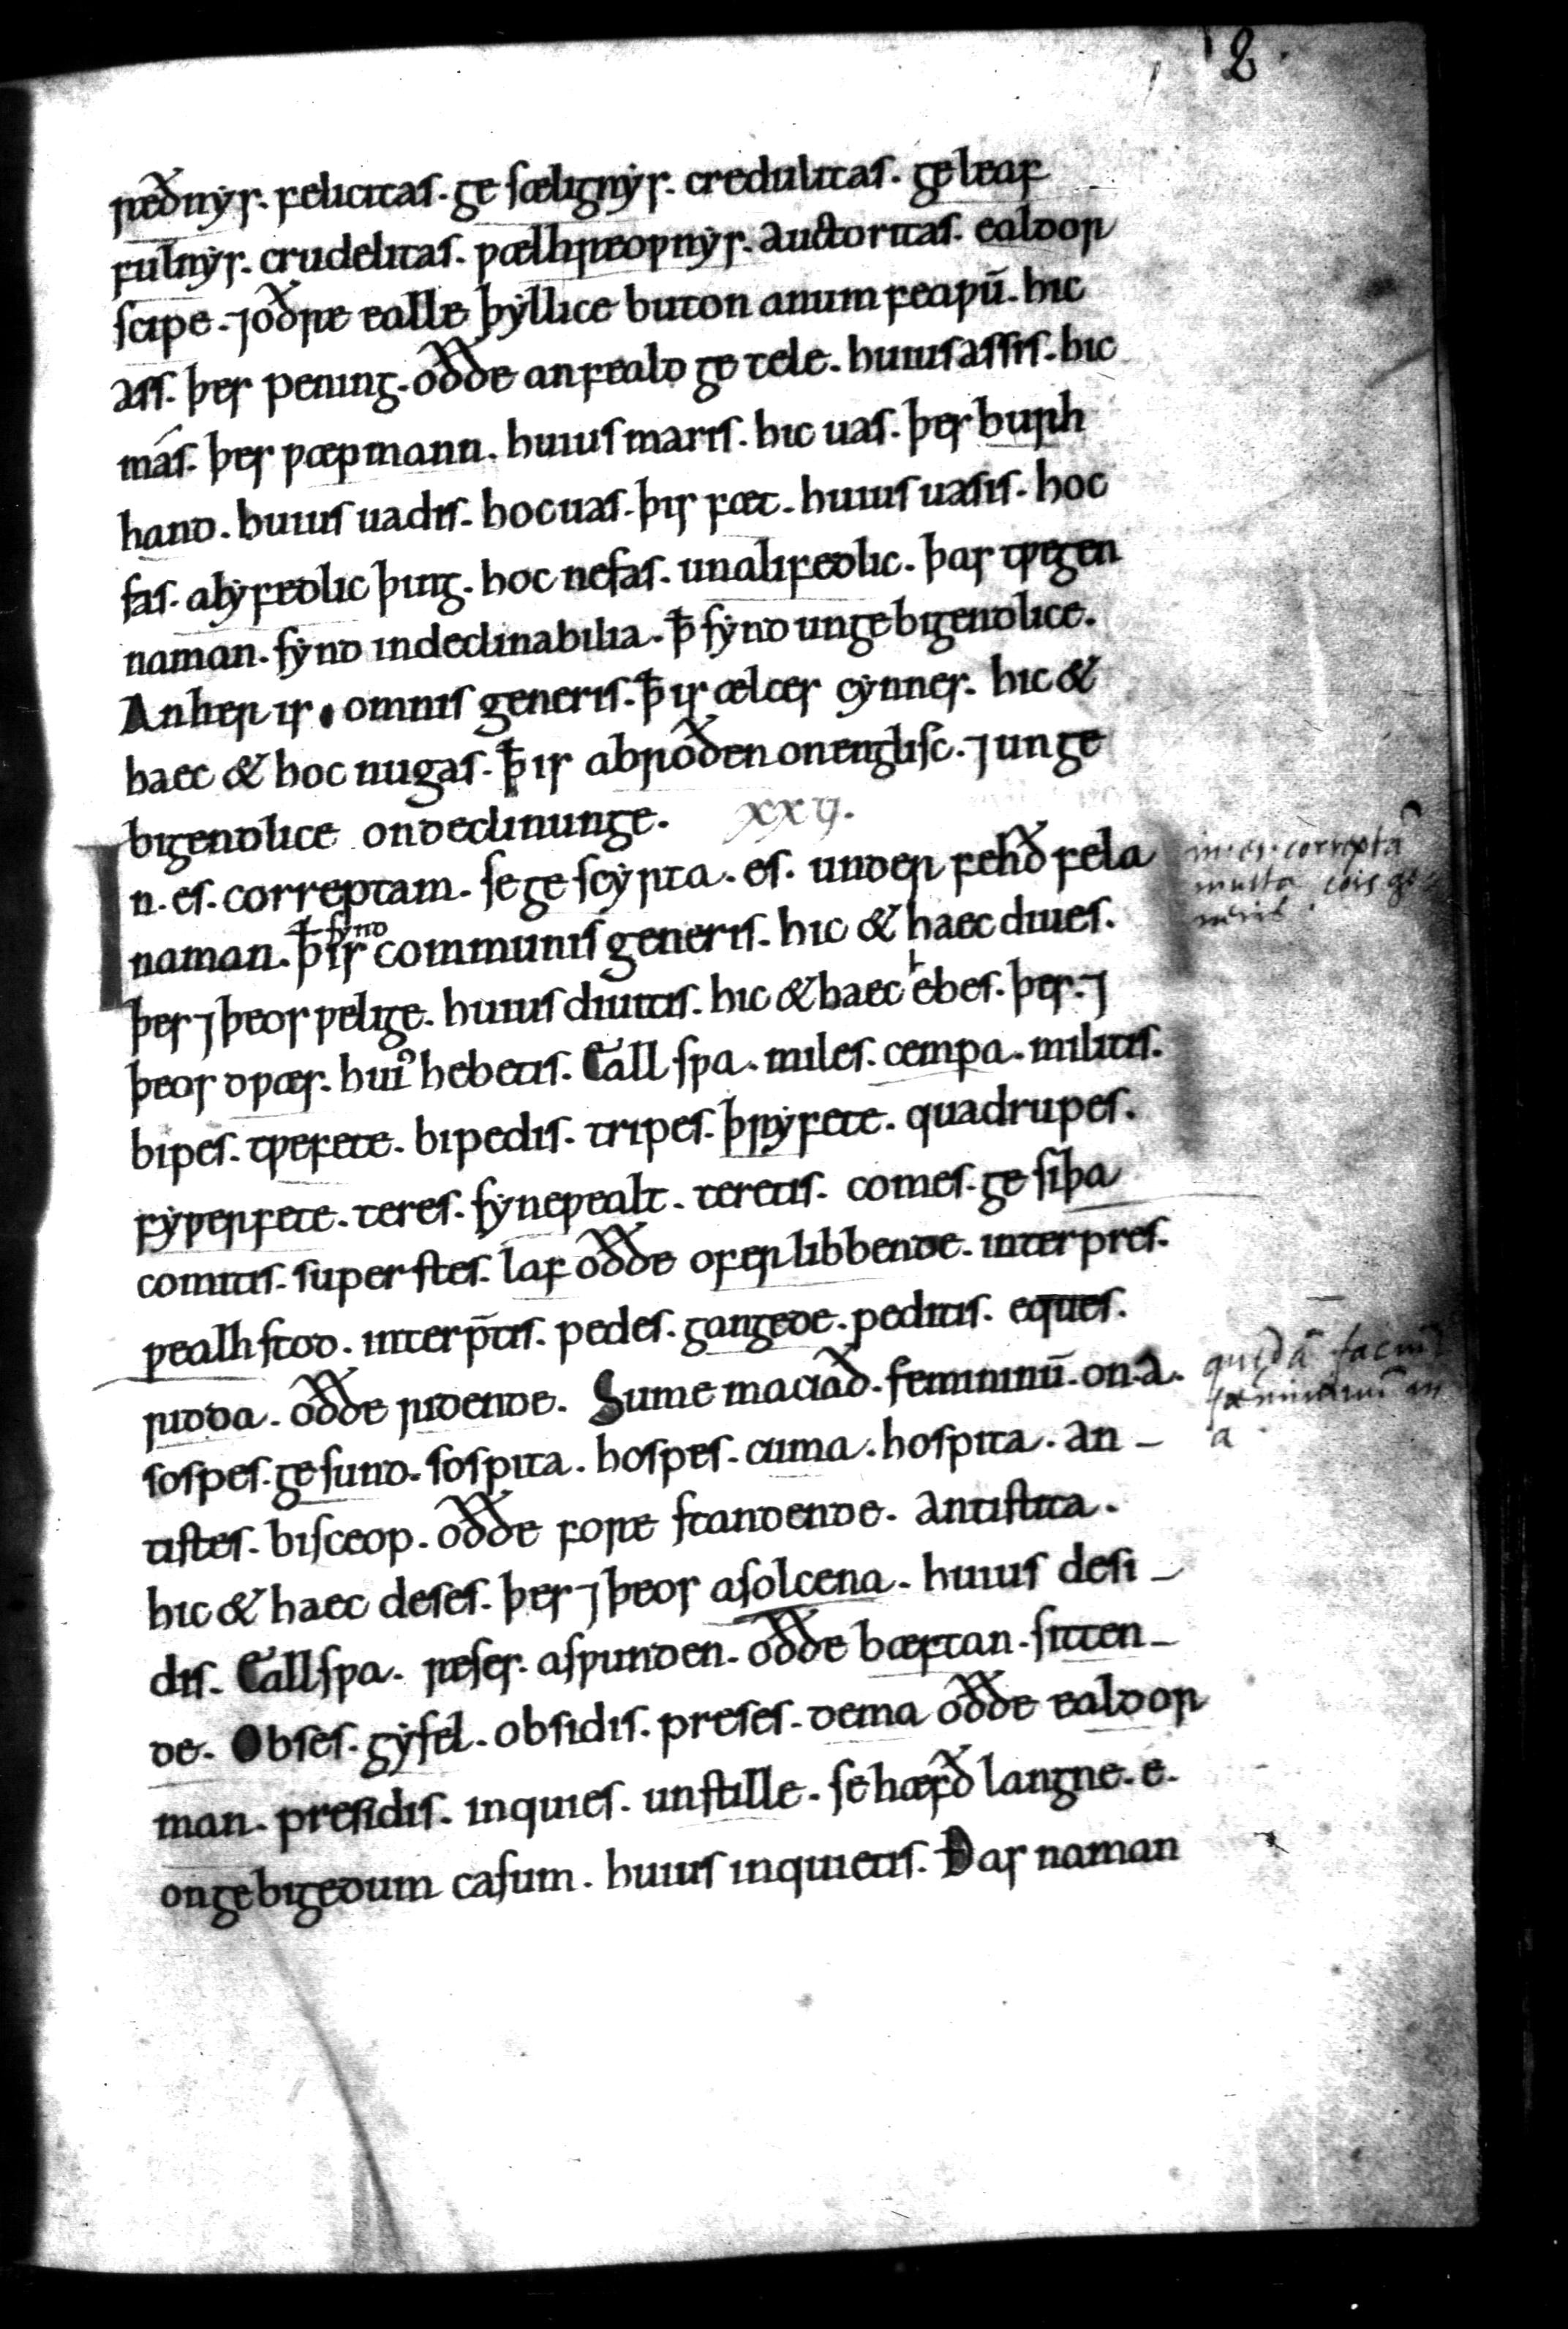 2
ræðnẏs. felicitas. ge sælignẏs. credulitas. ge leaf
fulnẏs. crudelitas. ƿælhreoƿnẏs. auctoritas. ealdor
scipe. ⁊ oðre ealle þẏllice buton anum feaƿū. hic
ass. þes pening. oððe anfeald ge tele. huius assis. hic
más. þes ƿæpmann. huius maris. hic uas. þes burh
hand. huius uadis. hoc uas. þis fæt. huius uasis. hoc
fas. alẏfedlic þing. hoc nefas. unalifedlic. þas tƿegen
naman. sẏnd indeclinabilia. ꝥ sẏnd unge bigendlice.
An her is. omnis generis. ꝥ is ælces cẏnnes. hic &
haec & hoc nugas. ꝥ is abroðen on englisc. ⁊ un ge
bigendlice on declinunge. xxij.
In. es. correptam. se ge scẏrta. es. under fehð fela
naman. ꝥ is ꝥ sẏnd communis generis. hic & haec diues.
þes ⁊ þeos ƿelige. huius diuitis. hic & haec hebes. þes. ⁊
þeos dƿæs. hui᷒ hebetis. Eall sƿa. miles. cempa. militis.
bipes. tƿefete. bipedis. tripes. þrẏfete. quadrupes.
fẏƿerfete. teres. sẏneƿealt. teretis. comes. ge siþa
comitis. superstes. laf oððe ofer libbende. interpres.
ƿealhstod. interp̄tis. pedes. gangede. peditis. eques.
ridda. oððe ridende. Sume maciað. femininū. on. a.
sospes. ge sund. sospita. hospes. cuma. hospita. an-
tistes. bisceop. oððe fore standende. antistita.
hic & haec deses. þes ⁊ þeos asolcena. huius desi-
dis. Eall sƿa. reses. asƿunden. oððe bæftan. sitten-
de. Obses. gẏsel. obsidis. preses. dema oððe ealdor
man. presidis. inquies. unstille. se hæfð langne. e.
on ge bigedum casum. huius inquietis. Ðas naman
in. es. correptā
multa cōis ge
neris.
quędā faciūt
fœmininū in
a